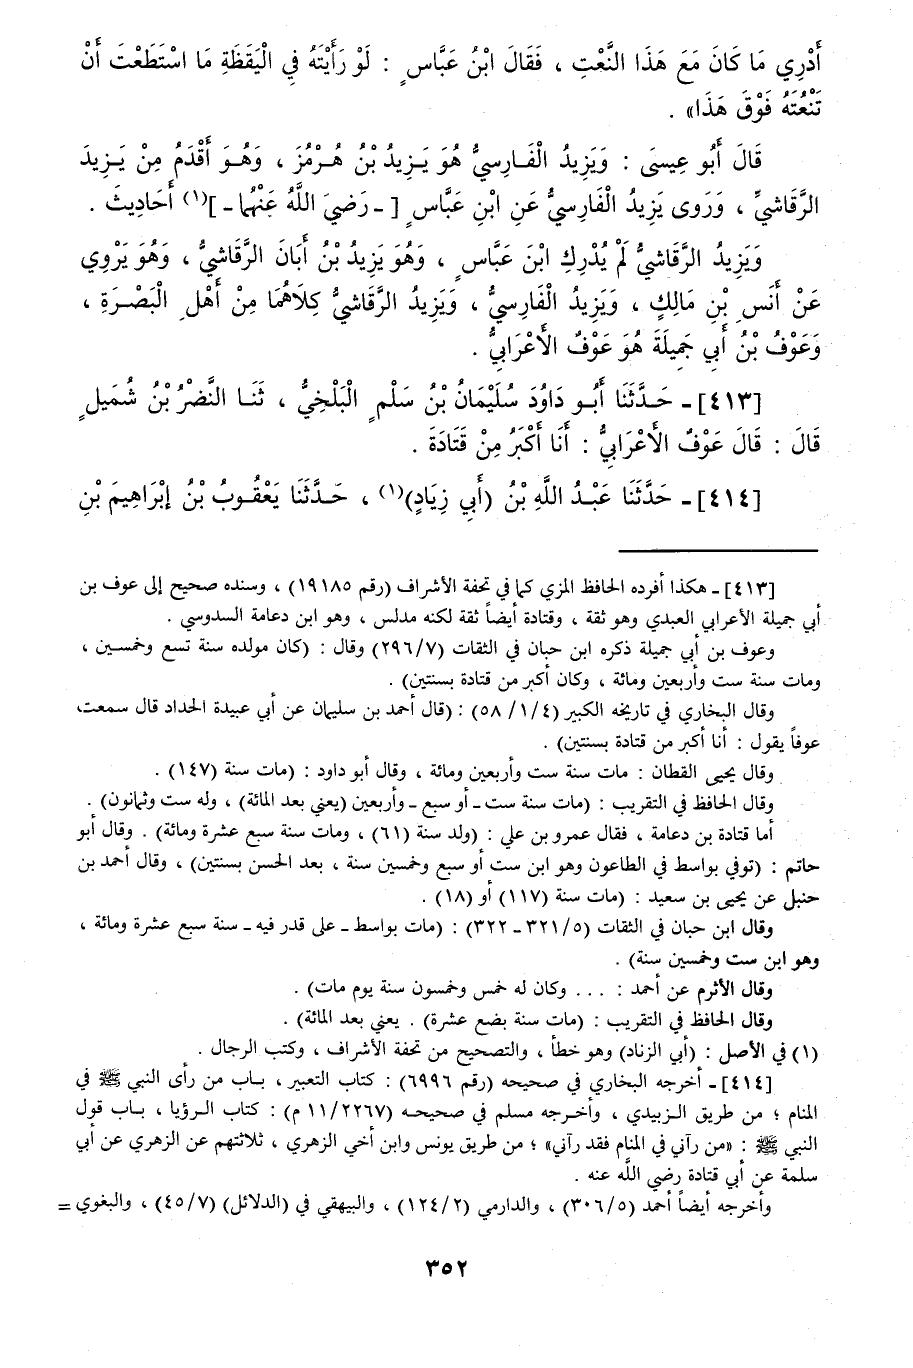 أَدْرِي مَا كَانَ مَعَ هَذَا النَّعْتِ ، فَقَالَ ابْنُ عَبَّاسٍ : لَوْ رَأَيْتَهُ فِي الْيَقَظَةِ مَا اسْتَطَعْتَ أَنْ
تَنْعَتَهُ فَوْقَ هَذَا» .
قَالَ أَبُو عِيسَى : وَيَزِيدُ الْفَارِسيُّ هُوَ يَزِيدُ بْنُ هُرْمُزَ ، وَهُوَ أَقْدَمُ مِنْ يَزِيدَ
الرَّقَاشيِّ ، وَرَوى يَزِيدُ الْفَارِسيُّ عَنِ ابْنِ عَبَّاسٍ [ـ رَضِيَ اللَّهُ عَنْهُما ـ](١) أَحَادِيثَ .
وَيَزِيدُ الرَّقَاشيُّ لَمْ يُدْرِكِ ابْنَ عَبَّاسٍ ، وَهُوَ يَزِيدُ بْنُ أَبَانَ الرَّقَاشيُّ ، وَهُوَ يَرْوِي
عَنْ أَنَسِ بْنِ مَالِكٍ ، وَيَزِيدُ الْفَارِسيُّ ، وَيَزِيدُ الرَّقَاشيُّ كِلَاهُمَا مِنْ أَهْلِ الْبَصْرَةِ ،
وَعَوْفُ بْنُ أَبي جَمِيلَةَ هُوَ عَوْفٌ الأَعْرَابيُّ .
[٤١٣] ـ حَدَّثَنَا أَبُو دَاوُدَ سُلَيْمَانُ بْنُ سَلْمٍ الْبَلْخِيُّ ، ثَنَا النَّضْرُ بْنُ شُمَيْلٍ
قَالَ : قَالَ عَوْفٌ الأَعْرَابيُّ : أَنَا أَكْبَرُ مِنْ قَتَادَةَ .
[٤١٤] ـ حَدَّثَنَا عَبْدُ اللَّهِ بْنُ (أَبِي زِيَادٍ)(١) ، حَدَّثَنَا يَعْقُوبُ بْنُ إبْرَاهِيمَ بْنِ
[٤١٣] ـ هكذا أفرده الحافظ المزي كما في تحفة الأشراف (رقم ١٩١٨٥) ، وسنده صحيح إلى عوف بن
أبي جميلة الأعرابي العبدي وهو ثقة ، وقتادة أيضاً ثقة لكنه مدلس ، وهو ابن دعامة السدوسي .
وعوف بن أبي جميلة ذكره ابن حبان في الثقات (٢٩٦/٧) وقال : (كان مولده سنة تسع وخمسين ،
ومات سنة ست وأربعين ومائة ، وكان أكبر من قتادة بسنتين) .
وقال البخاري في تاريخه الكبير (٥٨/١/٤) : (قال أحمد بن سليمان عن أبي عبيدة الحداد قال سمعت
عوفاً يقول : أنا أكبر من قتادة بسنتين) .
وقال يحيى القطان : مات سنة ست وأربعين ومائة ، وقال أبو داود : (مات سنة (١٤٧) .
وقال الحافظ في التقريب : (مات سنة ست ـ أو سبع ـ وأربعين (يعني بعد المائة) ، وله ست وثمانون) .
أما قتادة بن دعامة ، فقال عمرو بن علي : (ولد سنة (٦١) ، ومات سنة سبع عشرة ومائة) . وقال أبو
حاتم : (توفي بواسط في الطاعون وهو ابن ست أو سبع وخمسين سنة ، بعد الحسن بسنتين) ، وقال أحمد بن
حنبل عن يحيى بن سعيد : (مات سنة (١١٧) أو (١٨) .
وقال ابن حبان في الثقات (٣٢١/٥ ـ ٣٢٢) : (مات بواسط ـ على قدر فيه ـ سنة سبع عشرة ومائة ،
وهو ابن ست وخمسين سنة) .
وقال الأثرم عن أحمد : ... وكان له خمس وخمسون سنة يوم مات) .
وقال الحافظ في التقريب : (مات سنة بضع عشرة) . يعني بعد المائة) .
(١) في الأصل : (أبي الزناد) وهو خطأ ، والتصحيح من تحفة الأشراف ، وكتب الرجال .
[٤١٤] ـ أخرجه البخاري في صحيحه (رقم ٦٩٩٦) : كتاب التعبير ، باب من رأى النبي ﷺ في
المنام ؛ من طريق الزبيدي ، وأخرجه مسلم في صحيحه (١١/٢٢٦٧ م) : كتاب الرؤيا ، باب قول
النبي ﷺ : «من رآني في المنام فقد رآني» ؛ من طريق يونس وابن أخي الزهري ، ثلاثتهم عن الزهري عن أبي
سلمة عن أبي قتادة رضي اللَّه عنه .
وأخرجه أيضاً أحمد (٣٠٦/٥) ، والدارمي (١٢٤/٢) ، والبيهقي في (الدلائل) (٤٥/٧) ، والبغوي =
٣٥٢